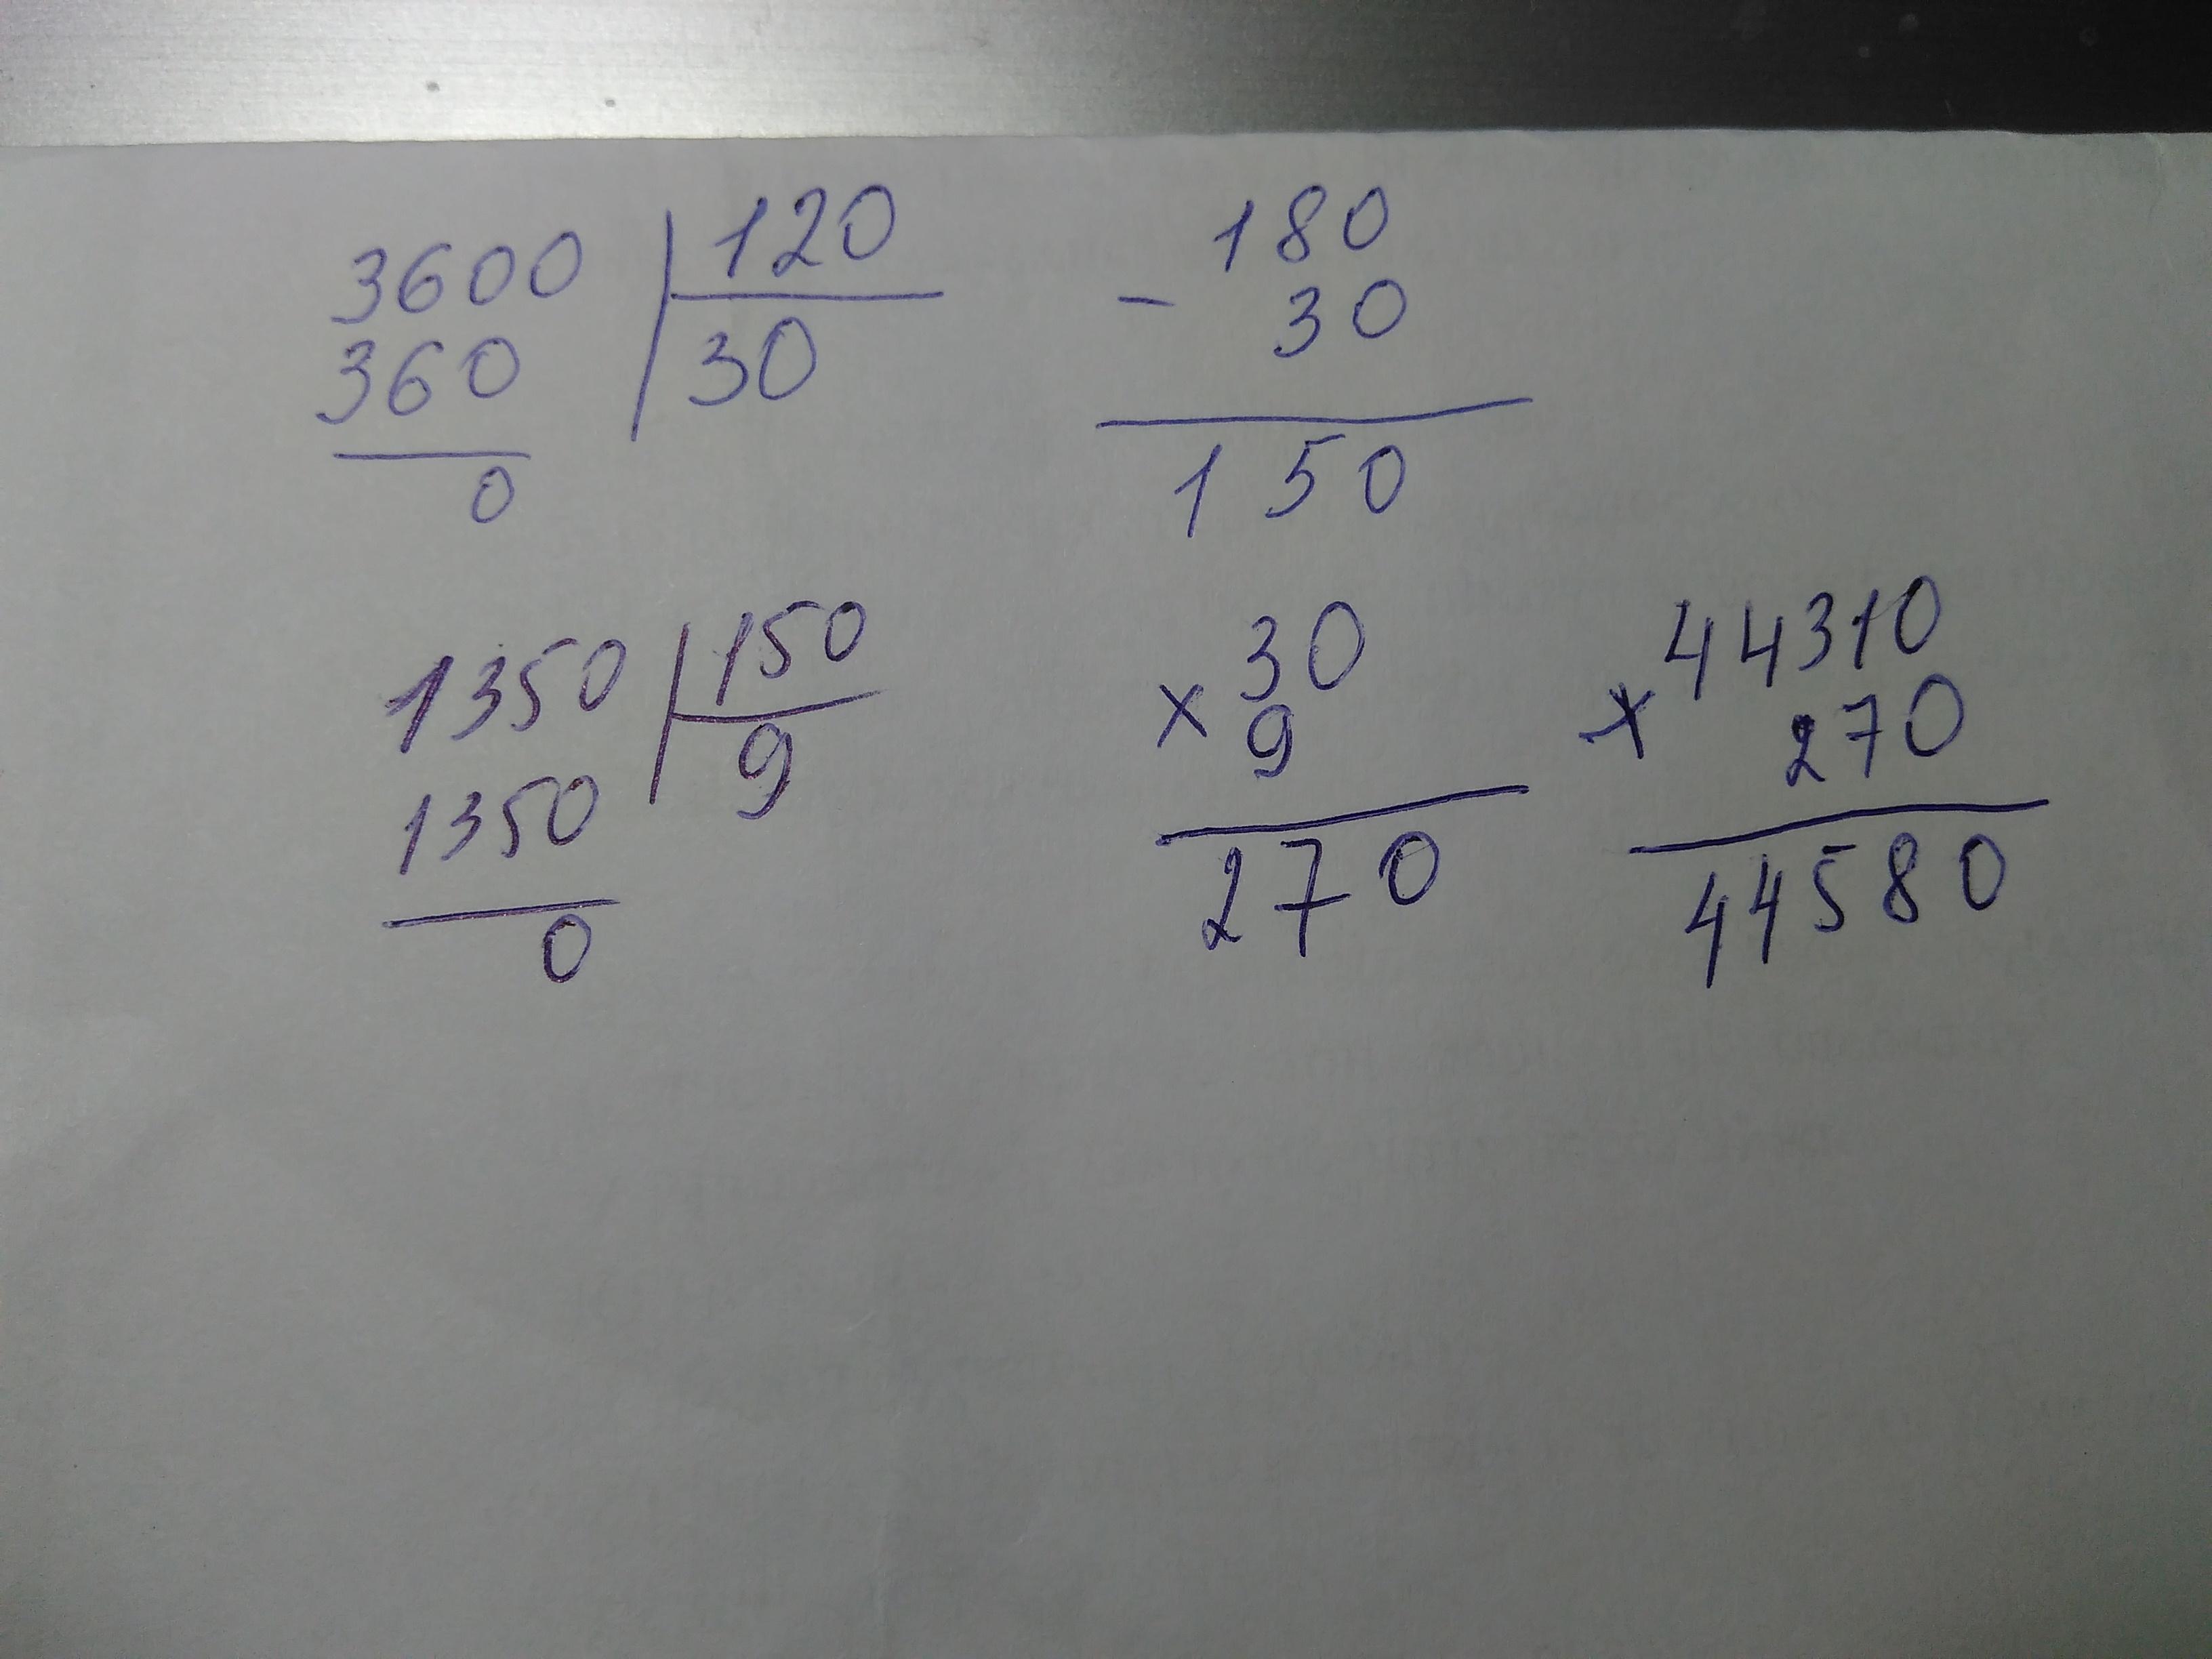 3600 120
360 30
0
180
- 30
150
1350 150
1350 9
0
30
× 9
270
44310
× 270
44580